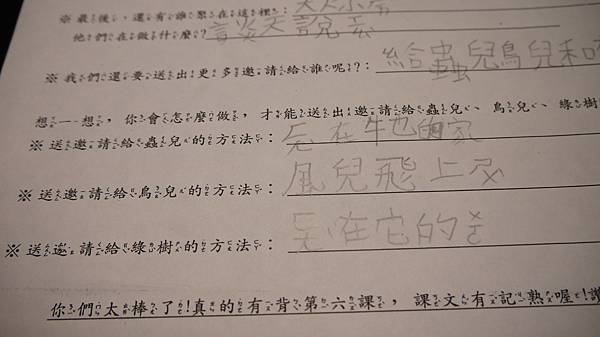 ※最後，還有誰聚在這裡：大人小孩
他們在做什麼？言炎天說
※我們還要送出更多邀請給誰呢？：給蟲兒鳥兒和
想一想，你會怎麼做，才能送出邀請給蟲兒、鳥兒、綠樹
※送邀請給蟲兒的方法：在牠的家
※送邀請給鳥兒的方法：風兒飛上
※送邀請給綠樹的方法：在它的
你們太棒了！真的有背第六課，課文有記熟喔！讚